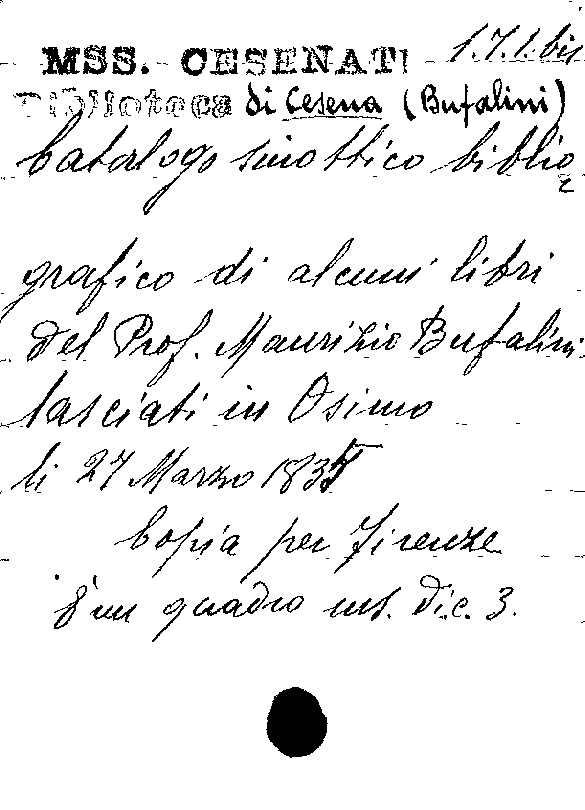 1.7.1.bis
MSS. CESENATI
Biblioteca di Cesena (Bufalini)
Catalogo sinottico biblio
grafico di alcuni libri
del Prof. Maurizio Bufalini
lasciati in Osimo
li 27 Marzo 1835
Copia per Firenze
È un quadro ms. di c. 3.